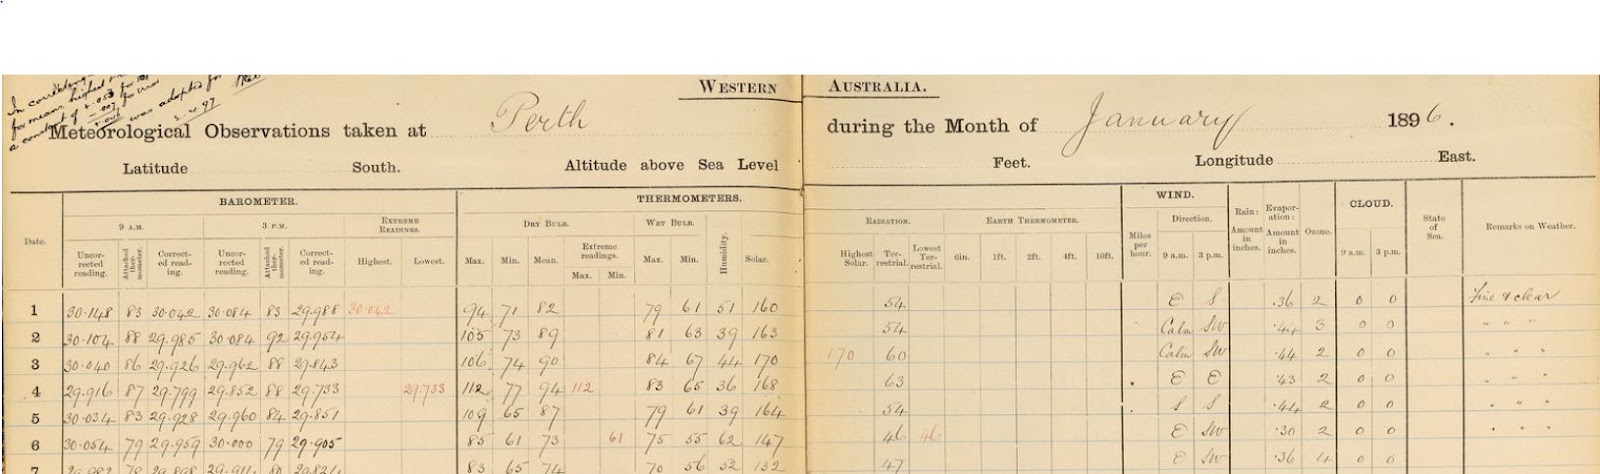 In
for means highest
a constant of
+.053 for
-.007 for
+.046 was adopted for
2.4.97
WESTERN AUSTRALIA.
Meteorological Observations taken at Perth during the Month of January 1896.
Latitude South. Altitude above Sea Level Feet. Longitude East.
BAROMETER. THERMOMETERS. WIND. CLOUD.
9 A.M. 3 P.M. EXTREME READINGS. DRY BULB. WET BULB. RADIATION. EARTH THERMOMETER. Direction.
Date. Uncorrected reading. Attached thermometer. Corrected reading. Uncorrected reading. Attached thermometer. Corrected reading. Highest. Lowest. Max. Min. Mean. Extreme readings. Max. Min. Max. Min. Humidity. Solar. Highest Solar. Terrestrial. Lowest Terrestrial. 6in. 1ft. 2ft. 4ft. 10ft. Miles per hour. 9 a.m. 3 p.m. Rain: Amount in inches. Evaporation: Amount in inches. Ozone. 9 a.m. 3 p.m. State of Sea. Remarks on Weather.
1 30.148 83 30.042 30.084 83 29.988 30.042 94 71 82 79 61 51 160 54 E S .36 2 0 0 Fine & clear
2 30.104 88 29.985 30.084 92 29.954 105 73 89 81 63 39 163 54 Calm SW .44 3 0 0 " " "
3 30.040 86 29.926 29.962 88 29.843 106 74 90 84 67 44 170 170 60 Calm SW .44 2 0 0 " " "
4 29.916 87 29.799 29.852 88 29.733 29.733 112 77 94 112 83 65 36 168 63 E E .43 2 0 0 " " "
5 30.034 83 29.928 29.960 84 29.851 109 65 87 79 61 39 164 54 S S .44 2 0 0 " " "
6 30.054 79 29.959 30.000 79 29.905 85 61 73 61 75 55 62 147 46 46 E SW .30 2 0 0 " " "
7 83 65 74 70 56 52 132 47 E SW .36 4 0 0